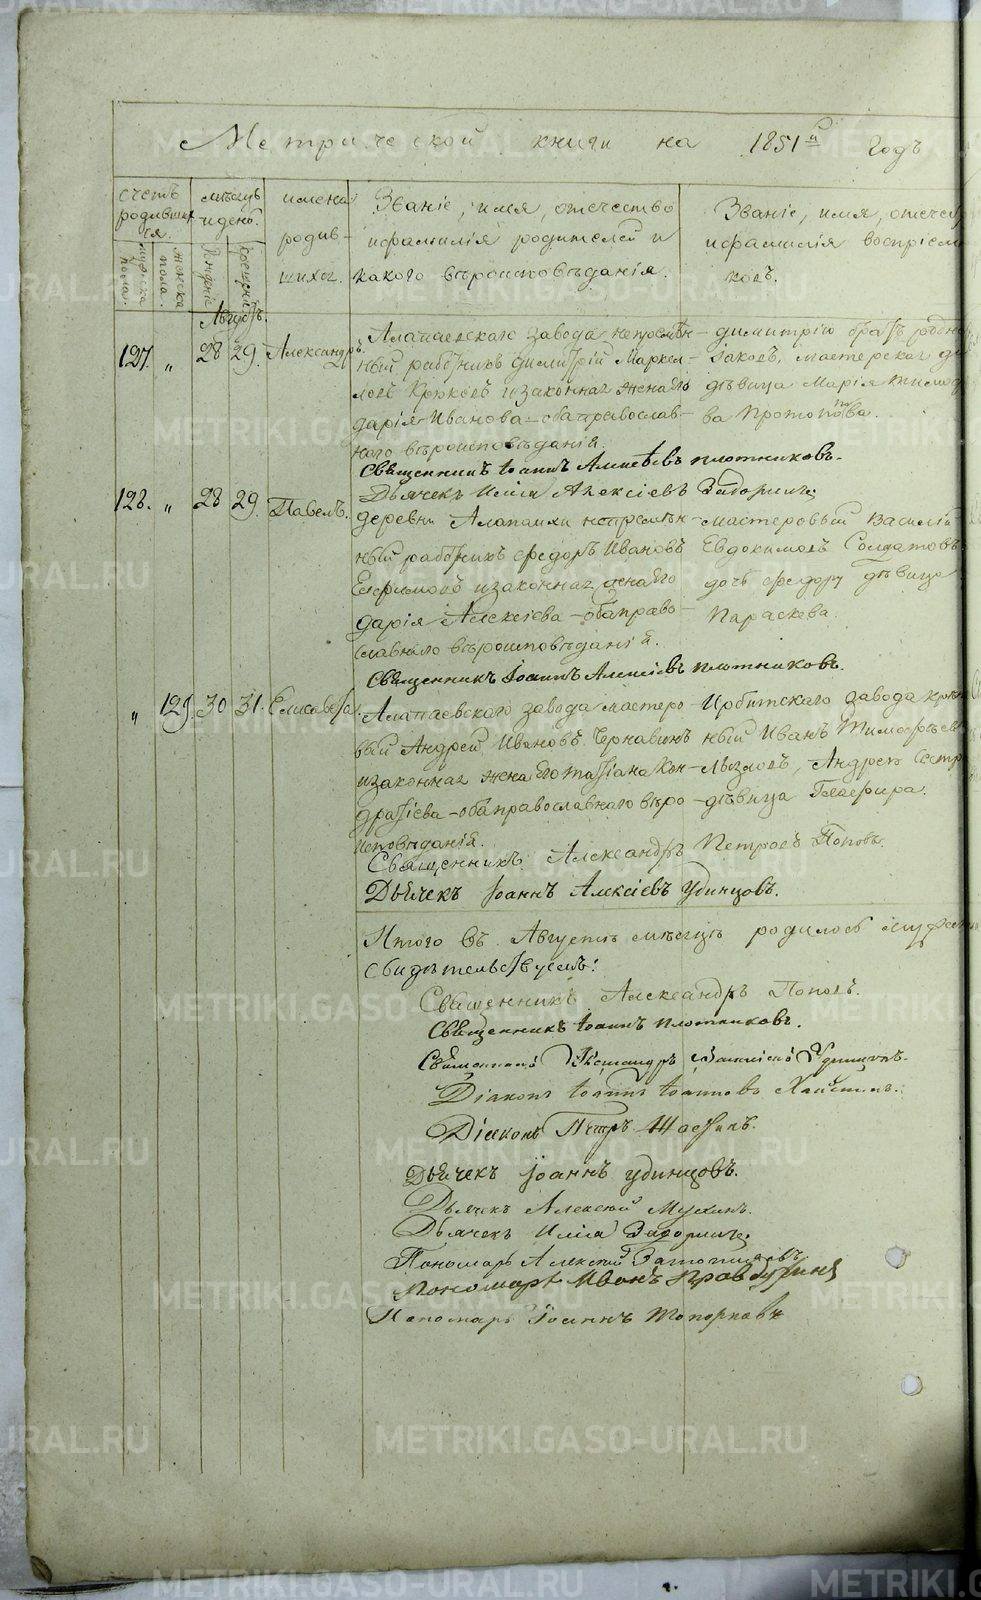 Метрической книги на 1851й Годъ
счетъ родившихся.
мѣсяцъ и день.
имена родив-шихся.
Званіе, имя, отечество
и фамилія родителей и
какого вѣроисповѣданія.
Званіе, имя, отечес
и фамилія воспріем
ковъ.
мужеска пола.
женска пола.
рожденія
крещенія
Августъ.
127. „ 28 29. Александръ.
Алапаевскаго завода непремѣн-
ный работникъ Димитрій Маркел-
ловъ Крюковъ и законная жена его
Дарія Иванова – оба православ-
наго вѣроисповѣданія.
Димитрію братъ родной
заковъ, мастерская до
дѣвица Марія Тимоф
ва Протопопова.
Священникъ Іоаннъ Алексѣевъ Плотниковъ.
Дьячекъ Илія Алексіевъ Задоринъ
128. „ 28 29. Павелъ.
деревни Алапаихи непремѣн-
ный работникъ Федоръ Ивановъ
Ефимовъ и законная жена его
Дарія Алексіева – оба право-
славнаго вѣроисповѣданія.
мастеровый Василій
Евдокимовъ Солдатовъ
дочь Федору дѣвица
Параскева.
Священникъ Іоаннъ Алексіевъ Плотниковъ.
„ 129. 30 31. Елисавета.
Алапаевскаго завода мастеро-
вый Андрей Ивановъ Чернавинъ
и законная жена его Татіана Кон-
дратіева – оба православнаго вѣро-
исповѣданія.
Ирбитскаго завода
ный Иванъ Тимофѣев
Андрею сестр
дѣвица Глафира.
Священникъ Александръ Петровъ Поповъ.
Дьячекъ Іоаннъ Алексіевъ Удинцовъ.
Итого въ Августѣ мѣсяцѣ родилось мужеска
свидѣтельствуемъ:
Священникъ Александръ Поповъ.
Священникъ Іоаннъ Плотниковъ.
Священникъ Удинцовъ.
Діаконъ Іоаннъ Іоанновъ
Діаконъ Петръ
Дьячекъ Іоаннъ Удинцовъ.
Дьячекъ Алексій Мухинъ.
Дьячекъ Илія Задоринъ.
Пономарь Алексій
Пономарь Иванъ
Пономарь Іоаннъ Топорковъ
METRIKI.GASO-URAL.RU